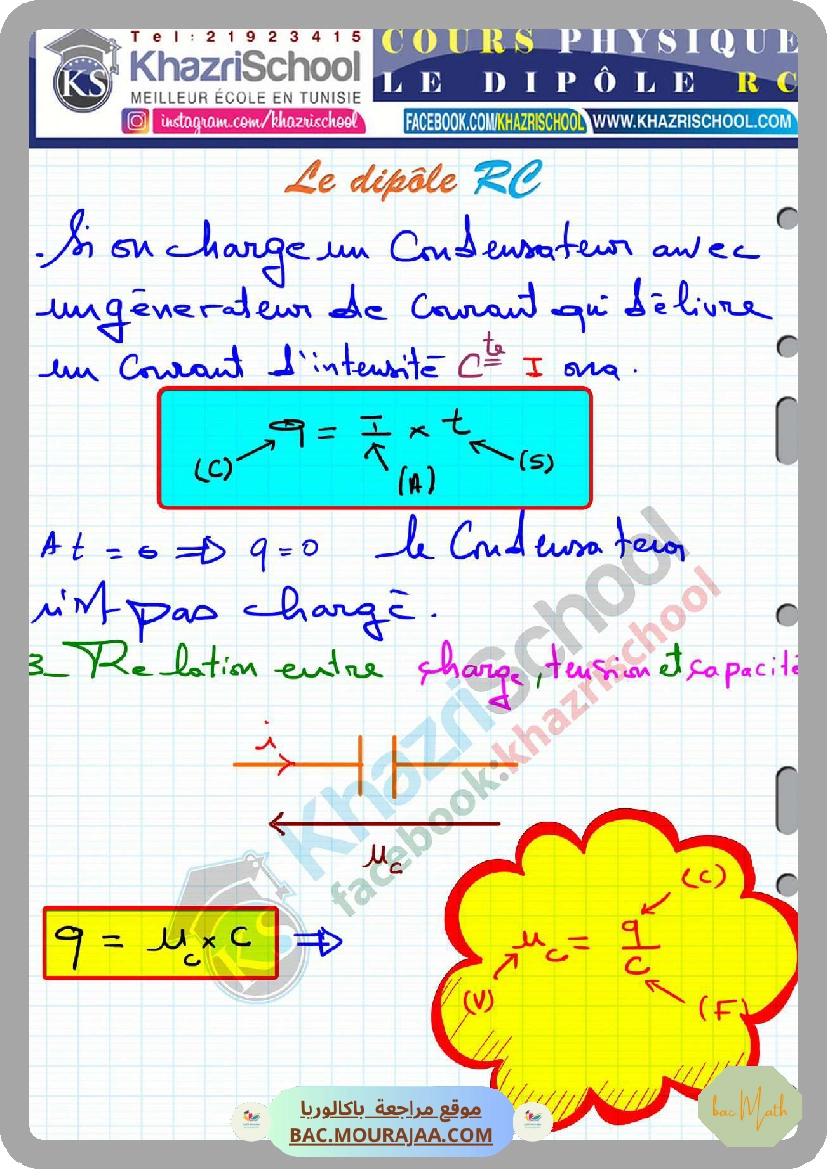 Tel:21923415
KS
KhazriSchool
MEILLEUR ÉCOLE EN TUNISIE
instagram.com/khazrischool
COURS PHYSIQUE
LE DIPÔLE RC
FACEBOOK.COM/KHAZRISCHOOL
WWW.KHAZRISCHOOL.COM
Le dipôle RC
. Si on charge un Condensateur avec
un génerateur de Courant qui délivre
un Courant d'intensité Cte I on a.
q = I × t
(C) (A) (S)
At = 0 ⇒ q = 0 le Condensateur
n'est pas chargé.
3_ Relation entre charge, tension et capacité
i
uc
q = uc × C ⇒
uc = q/C
(C)
(V)
(F)
KhazriSchool
facebook:khazrischool
KS
موقع مراجعة باكالوريا
BAC.MOURAJAA.COM
bac Math